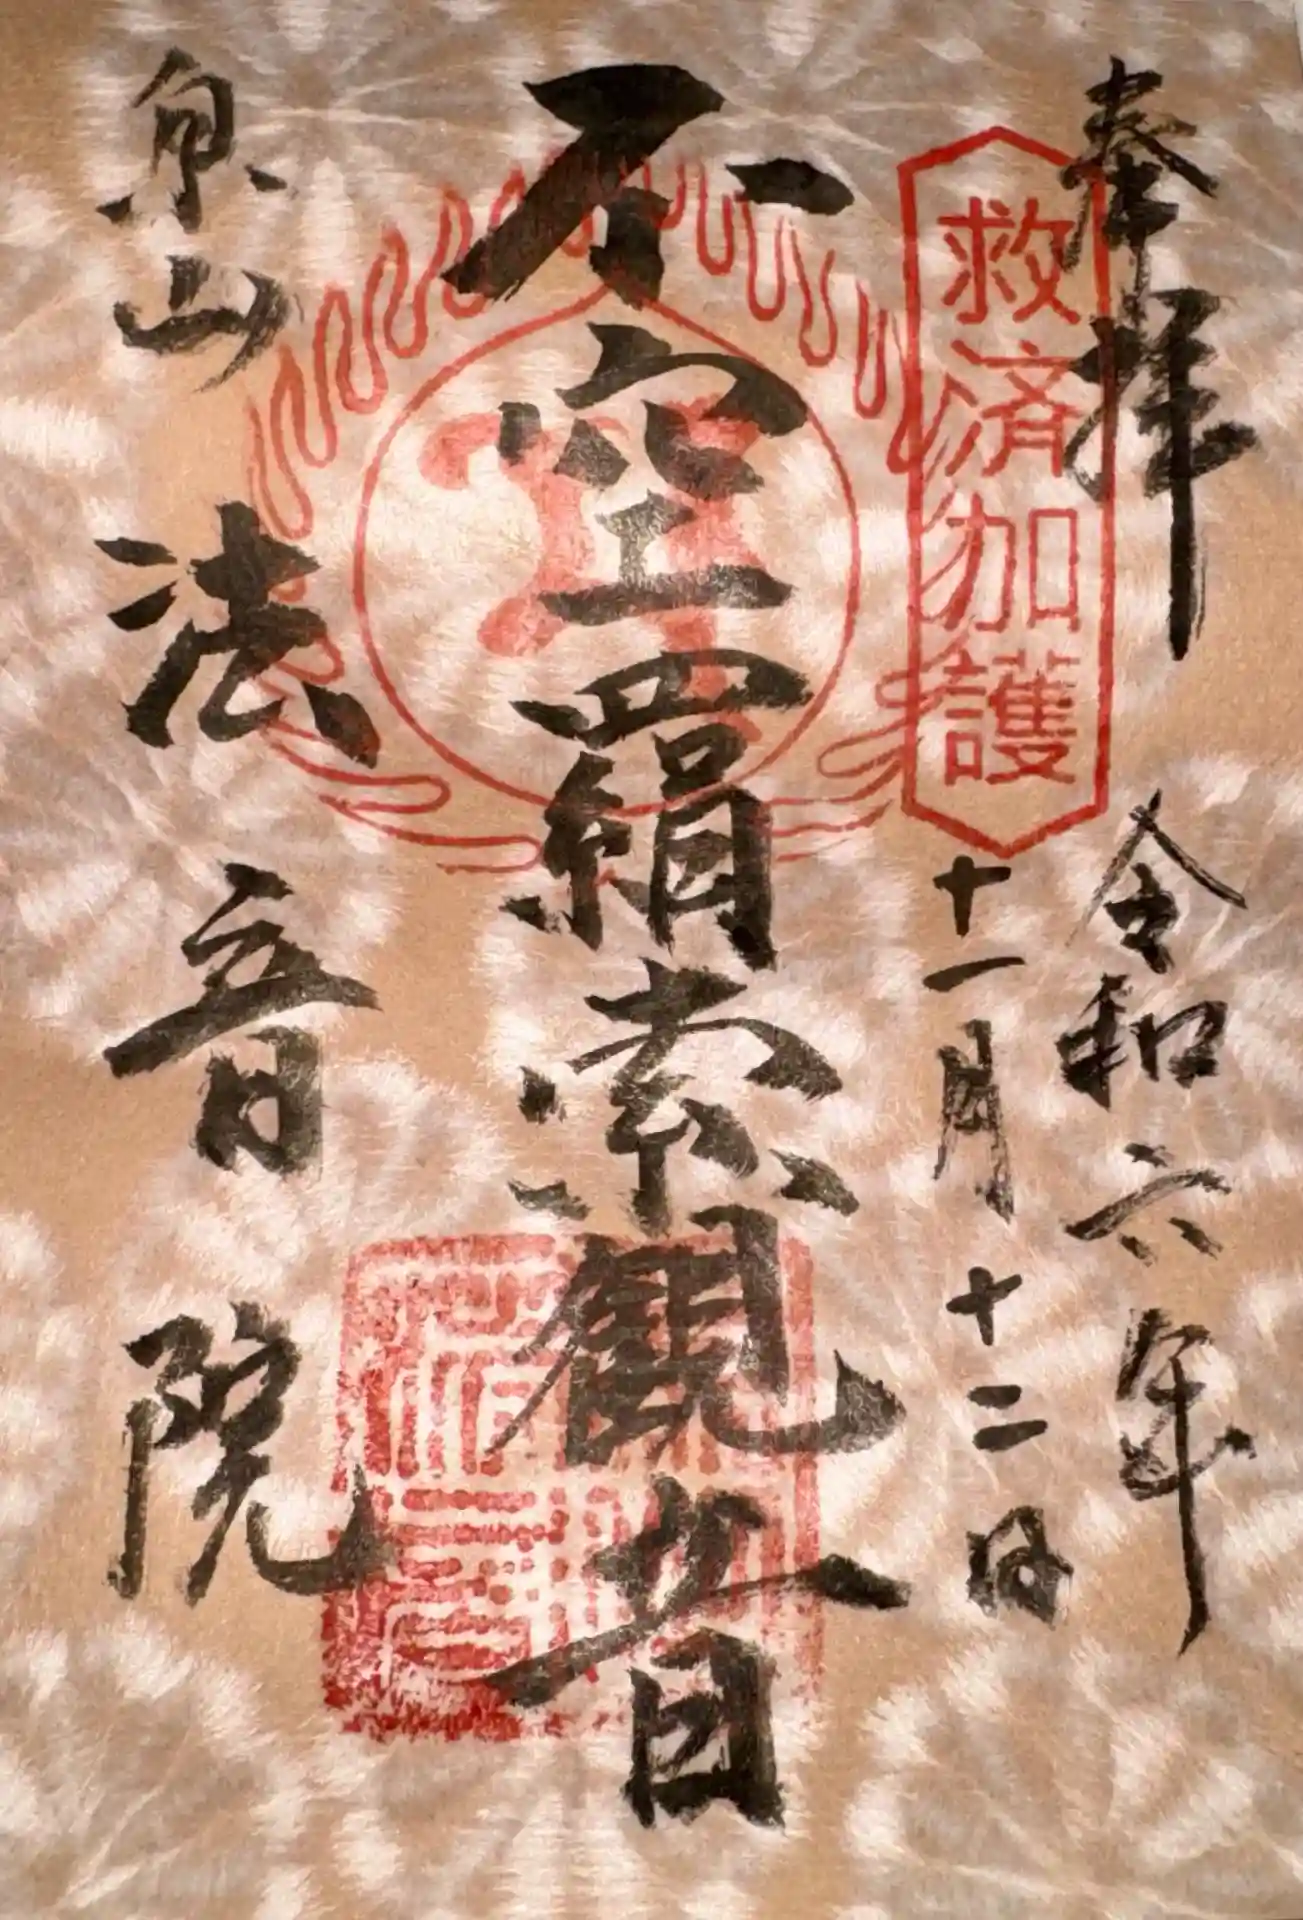 奉拝
救済加護
令和六年
十一月十二日
不空羂索観音
泉山
法音院